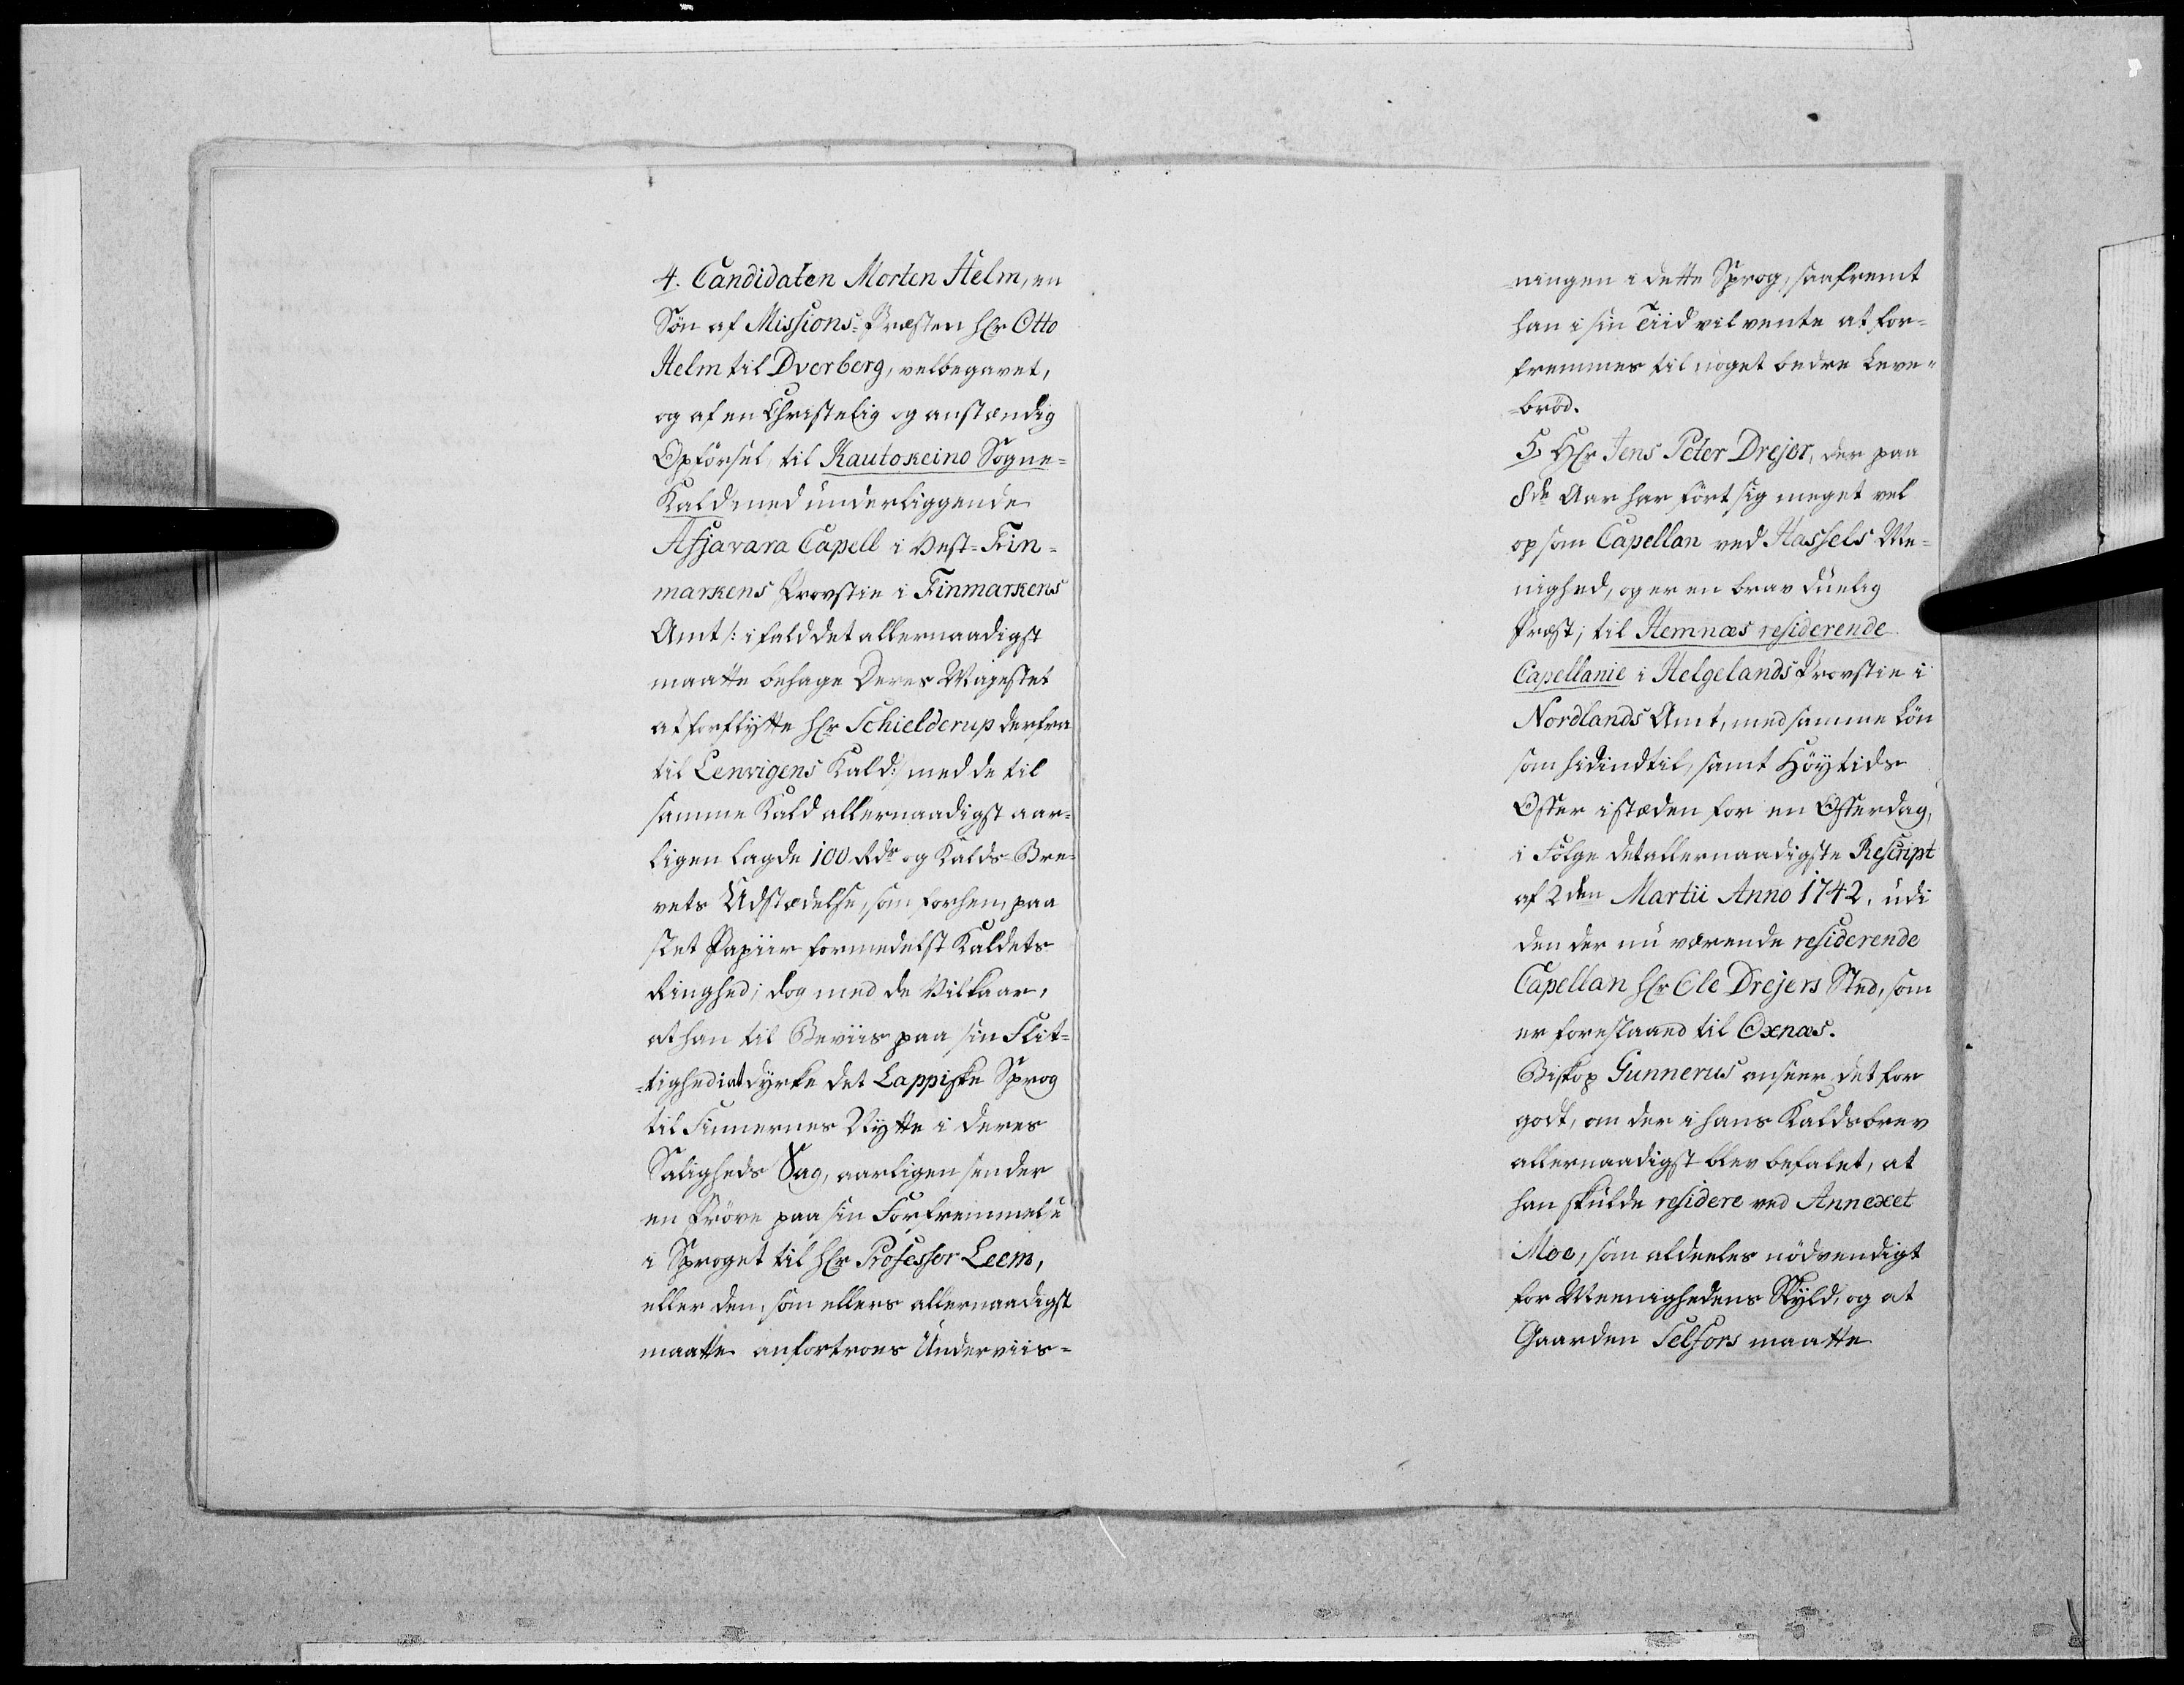 4. Candidaten Morten Helm, en
Søn af Missions-Præsten Hr Otto
Helm til Dverberg, velbegavet,
og af en Christelig og anstændig
Opførsel, til Kautokeino Sogne-
Kald med underliggende
Afjavara Capell i Vest-Fin-
markens Provstie i Finmarkens
Amt /: ifald det allernaadigst
maatte behage Deres Majestet
at forflytte Hr Schielderup derfra
til Lenvigens Kald :/ med de til
samme Kald allernaadigst aar-
ligen lagde 100 Rdr og Kalds-Bre-
vets Udstædelse, som forhen, paa
slet Papiir formedelst Kaldets
Ringhed; dog med de Vilkaar,
at han til Beviis paa sin Flit-
-tighed i at dyrke det Lappiske Sprog
til Finnernes Nytte i deres
Saligheds Sag, aarligen sender
en Prøve paa sin Forfremmelse
i Sproget til Hr Professor Leem,
eller den, som ellers allernaadigst
maatte anfortroes Underviis-
-ningen i dette Sprog, saafremt
han i sin Tiid vil vente at for-
fremmes til noget bedre Leve-
-brød.
5. Hr Jens Peter Drejer, der paa
8de Aar har ført sig meget vel
op som Capellan ved Hassels Me-
nighed, og er en brav duelig
Præst; til Hemnæs residerende
Capellanie i Helgelands Provstie i
Nordlands Amt, med samme Løn
som hidindtil, samt Höytids
Offer istæden for en Offerdag,
i Følge det allernaadigste Rescript
af 2den Martii Anno 1742, udi
den der nu værende residerende
Capellan Hr Ole Drejers Sted, som
er foreslaaed til Oxnæs.
Biskop Gunnerus anseer det for
godt, om der i hans Kaldsbrev
allernaadigst blev befalet, at
han skulde residere ved Annexet
Moe, som aldeeles nødvendigt
for Meenighedens Skyld, og at
Gaarden Selfors maatte